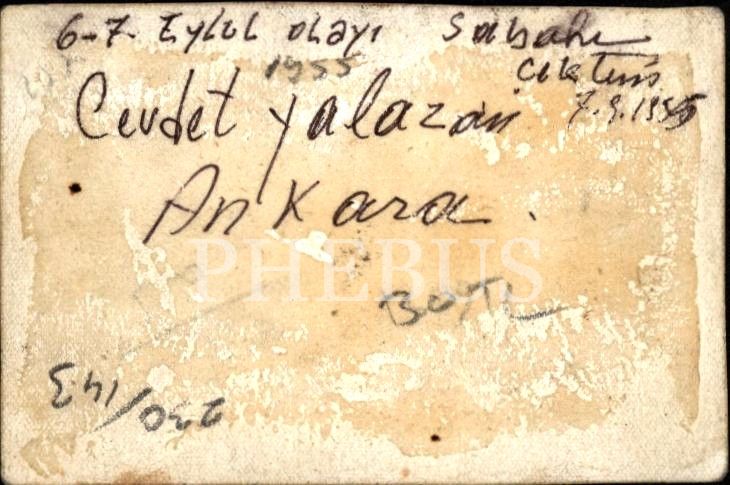 6-7. Eylül olayı Sabahı
1955 çektim
Cevdet Yalazan 7.9.1955
Ankara.
PHEBUS
230/143